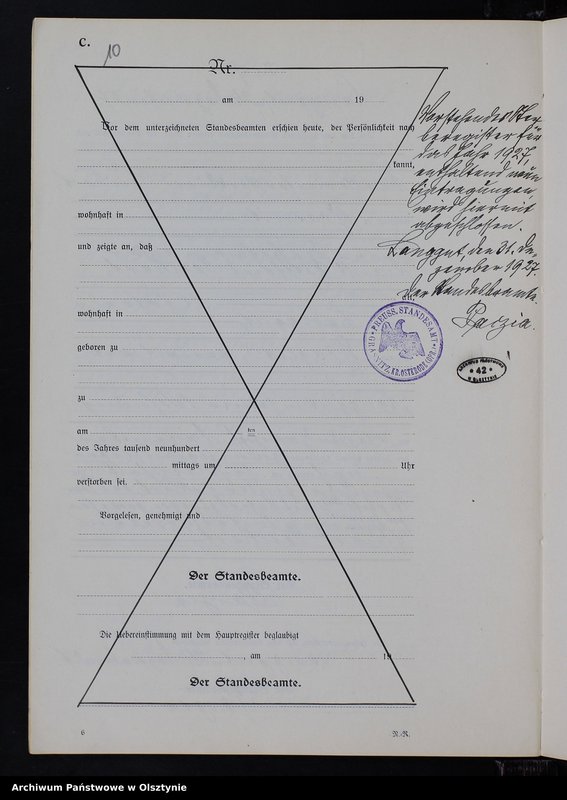 C.
10
Nr.
am 19
Vor dem unterzeichneten Standesbeamten erschien heute, der Persönlichkeit nach
kannt,
wohnhaft in
und zeigte an, daß
alt,
wohnhaft in
geboren zu
zu
am ten
des Jahres tausend neunhundert
mittags um Uhr
verstorben sei.
Vorgelesen, genehmigt und
Der Standesbeamte.
Die Uebereinstimmung mit dem Hauptregister beglaubigt
, am 19
Der Standesbeamte.
6 N./N.
Vorstehendes Ster
beregister für
das Jahr 1927,
enthaltend neun
Eintragungen
wird hiermit
abgeschlossen.
Langgut, den 31. De-
zember 1927.
Der Standesbeamte.
PREUSS. STANDESAMT
KR. OSTERODE OPR.
42
W OLSZTYNIE
Archiwum Państwowe w Olsztynie